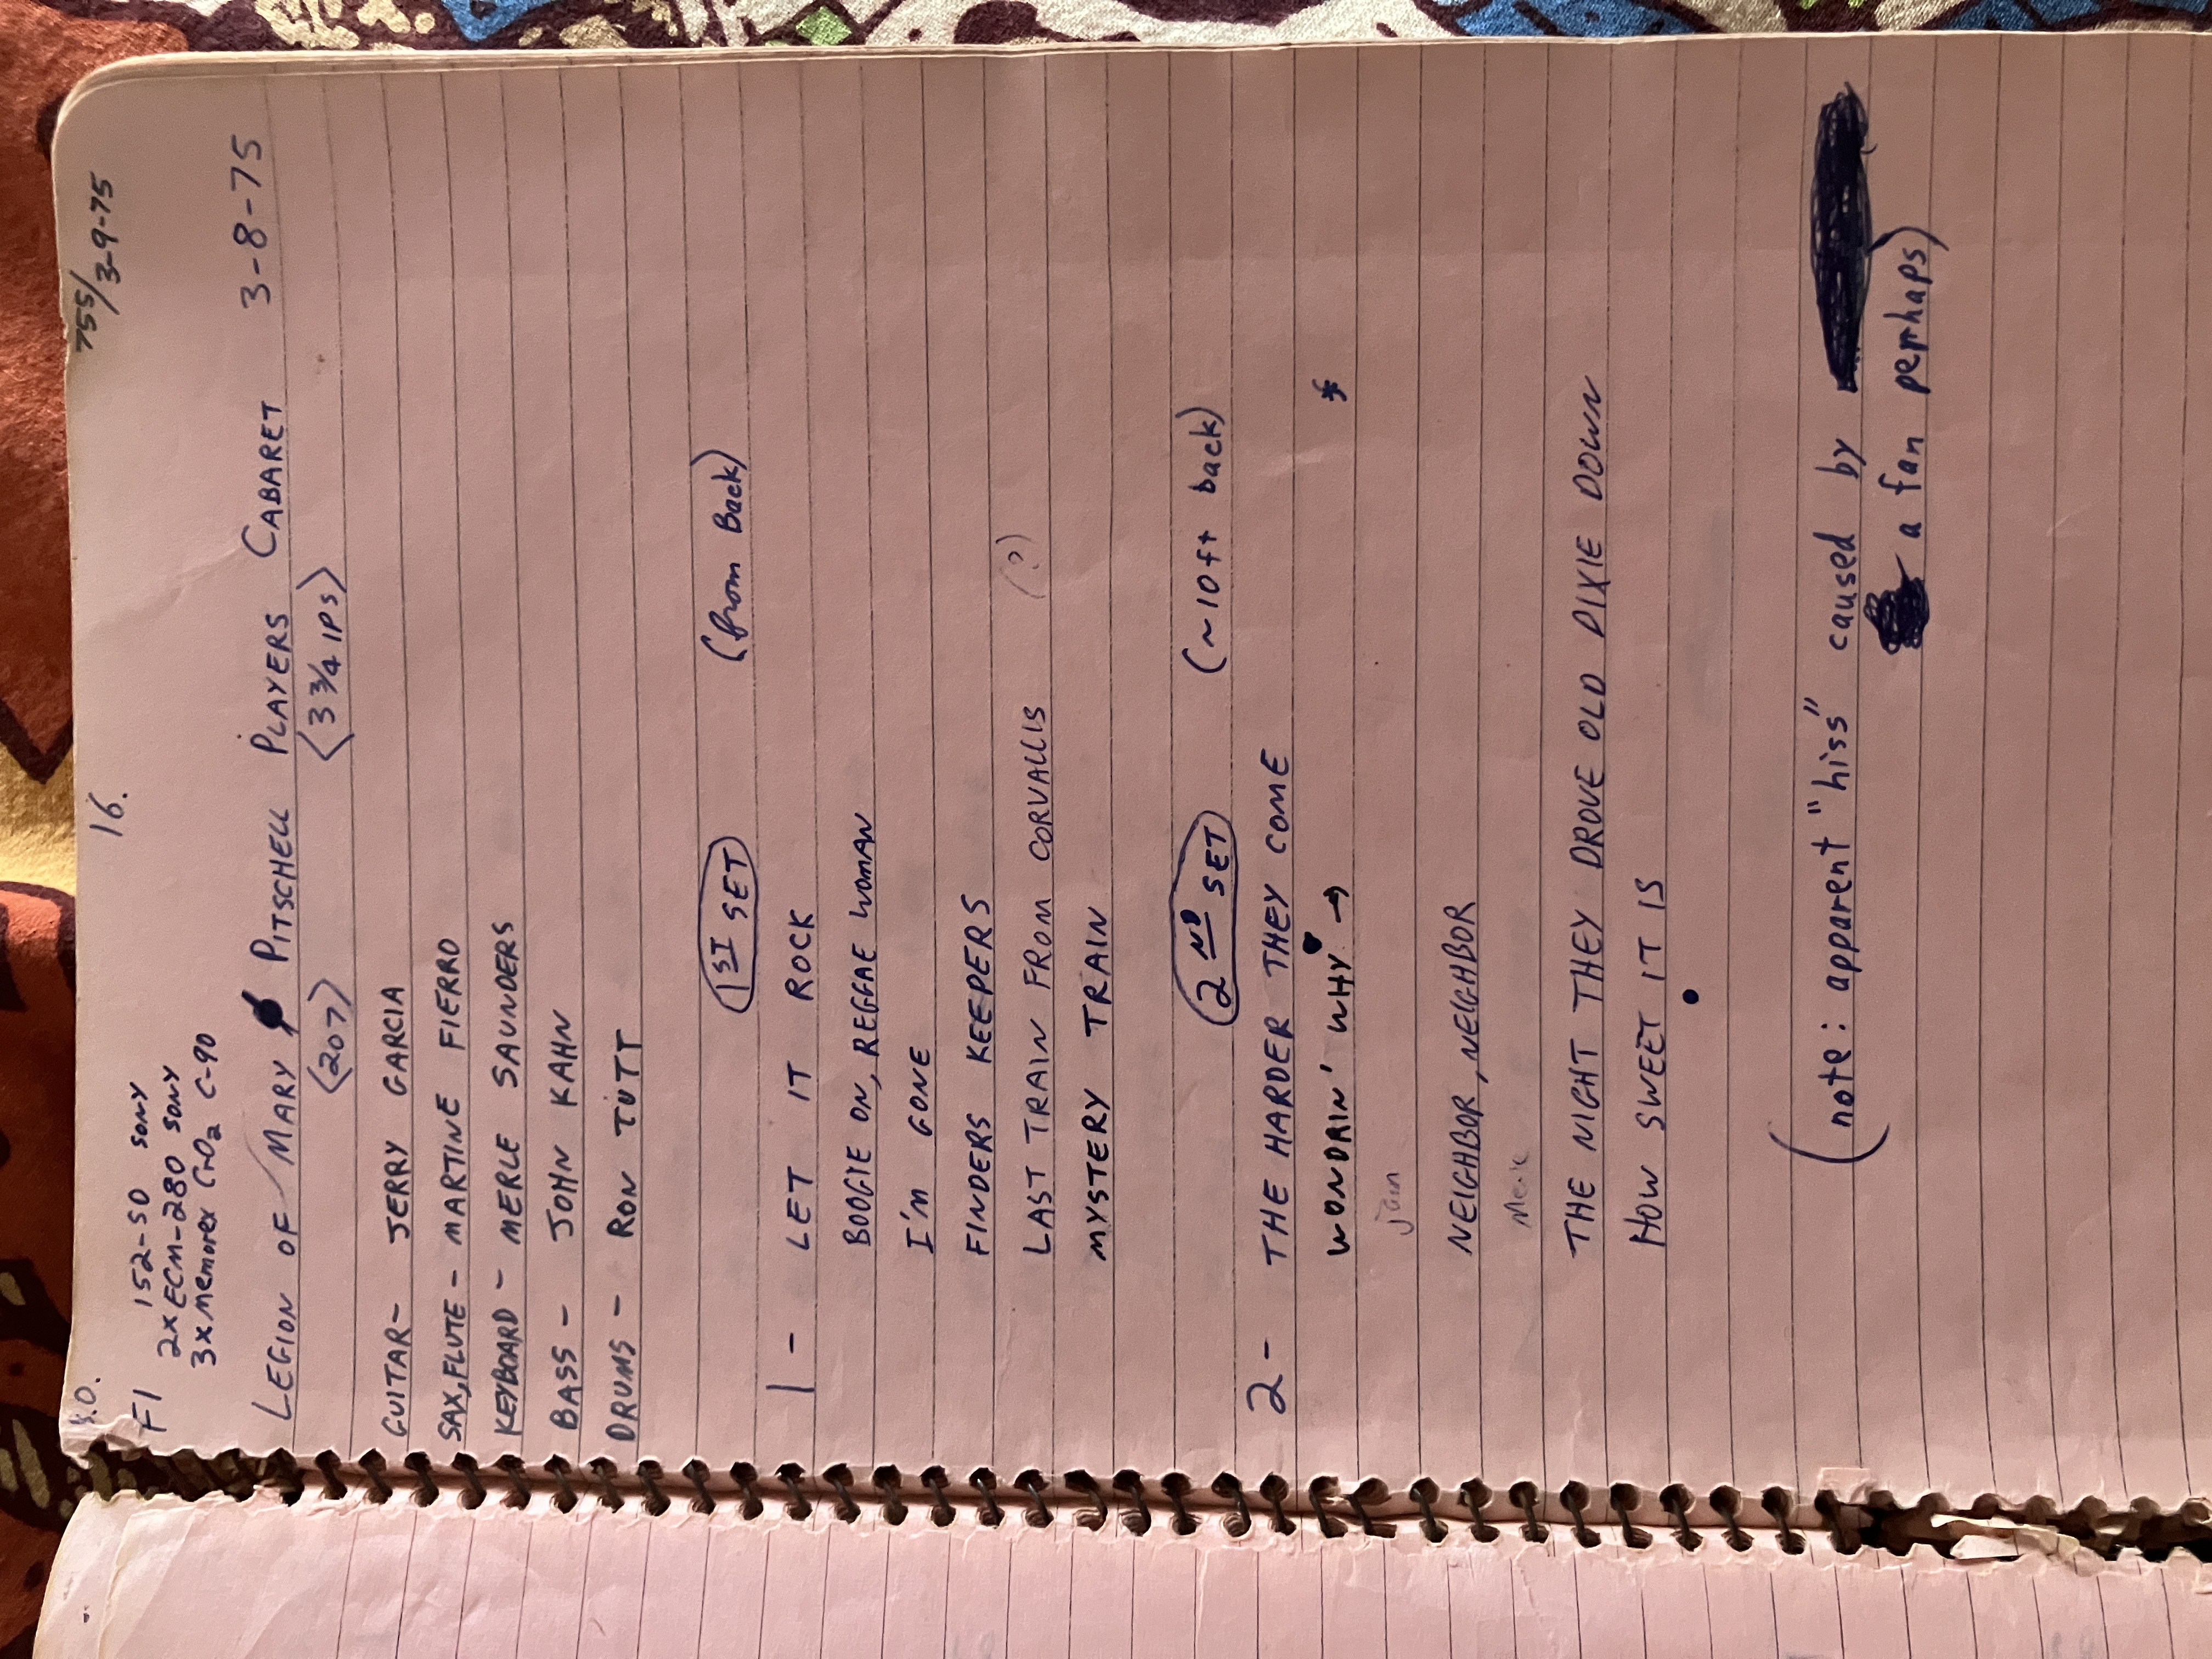 16.
755/3-9-75
F1 152-SD SONY
2x ECM-280 SONY
3x Memorex CrO2 C-90
LEGION OF MARY PITSCHELL PLAYERS CABARET 3-8-75
<207> <3 3/4 IPS>
GUITAR- JERRY GARCIA
SAX, FLUTE - MARTINE FIERRO
KEYBOARD - MERLE SAUNDERS
BASS - JOHN KAHN
DRUMS - RON TUTT
1ST SET (from Back)
1 - LET IT ROCK
BOOGIE ON, REGGAE WOMAN
I'M GONE
FINDERS KEEPERS
LAST TRAIN FROM CORVALLIS (?)
MYSTERY TRAIN
2ND SET (~10ft back)
2 - THE HARDER THEY COME
WONDRIN' WHY → *
Jam
NEIGHBOR, NEIGHBOR
THE NIGHT THEY DROVE OLD DIXIE DOWN
HOW SWEET IT IS
(note: apparent "hiss" caused by
a fan perrhaps)